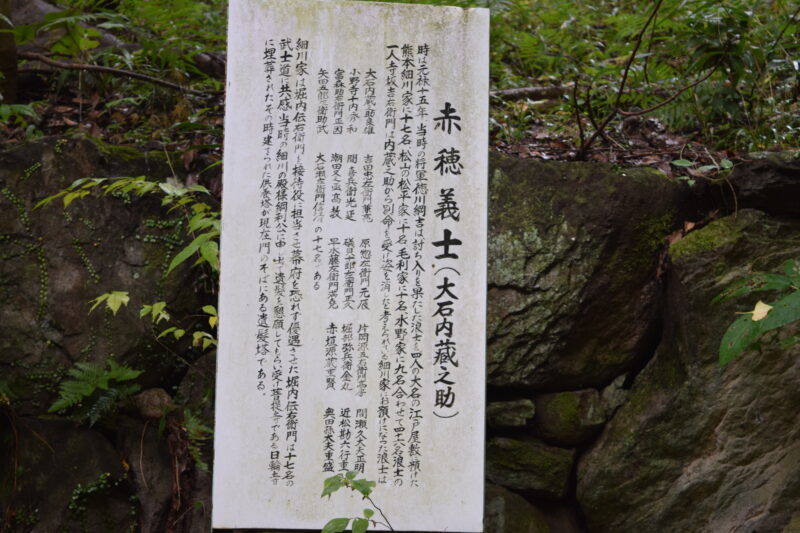 赤穂義士(大石内蔵之助)
時は元禄十五年 当時の将軍徳川綱吉は討ち入りを果たした浪士を四人の大名の江戸屋敷へ預けた
熊本細川家に十七名 松山の松平家に十名 毛利家に十名 水野家に九名合わせて四十六名浪士の
一人寺坂吉右衛門は内蔵之助から別命を受け姿を消したと考えられている細川家にお預けになった浪士は
大石内蔵之助良雄 吉田忠左衛門兼亮 原惣左衛門元辰 片岡源五右衛門高房 間瀬久太夫正明
小野寺十内秀和 間喜兵衛光延 磯貝十郎左衛門正久 堀部弥兵衛金丸 近松勘六行重
富森助右衛門正因 潮田又之丞高教 早水藤左衛門満尭 赤埴源蔵重賢 奥田孫太夫重盛
矢田五郎右衛門助武 大石瀬左衛門信清 の十七名である
細川家は堀内伝右衛門を接待役に担当させ幕府を恐れず優遇させた 堀内伝右衛門は十七名の
武士道に共感 当時の細川の殿様綱利公に申し出て遺髪を懇願してもらい受け菩提寺である日輪寺
に埋葬されたその時建てられた供養塔が現在門のそばにある遺髪塔である。